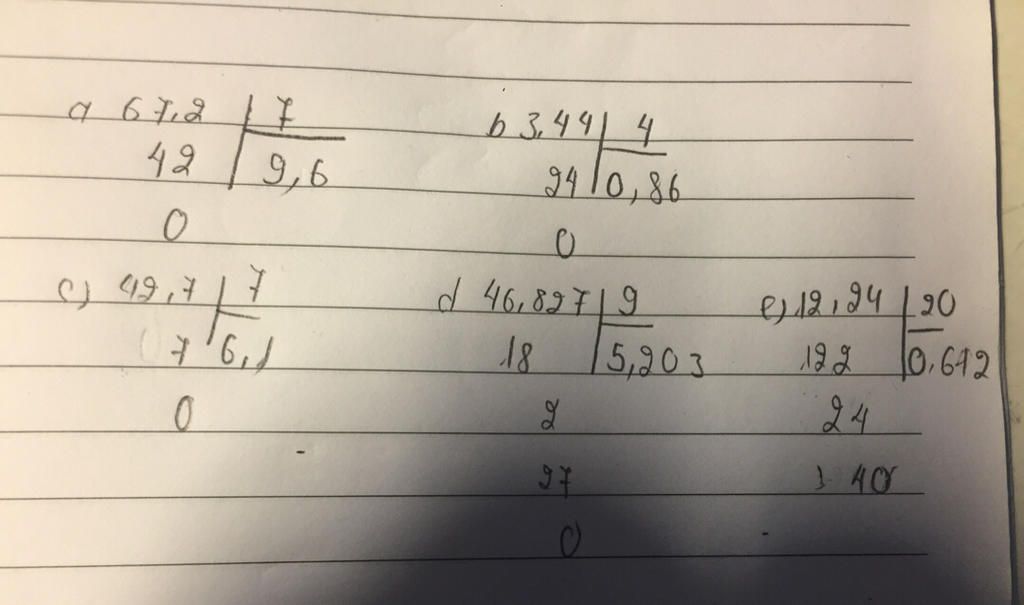 a 67,2 7
42 9,6
0
b 3,44 4
24 0,86
0
c) 42,7 7
7 6,1
0
d 46,827 9
18 5,203
2
27
0
e) 12,24 20
122 0,612
24
40